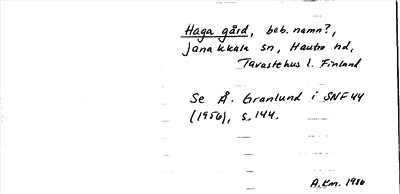 Haga gård, beb. namn?,
Janakkala sn, Hauho hd,
Tavastehus l. Finland
Se Å. Granlund i SNF 44
(1956), s. 144.
A.Km. 1986